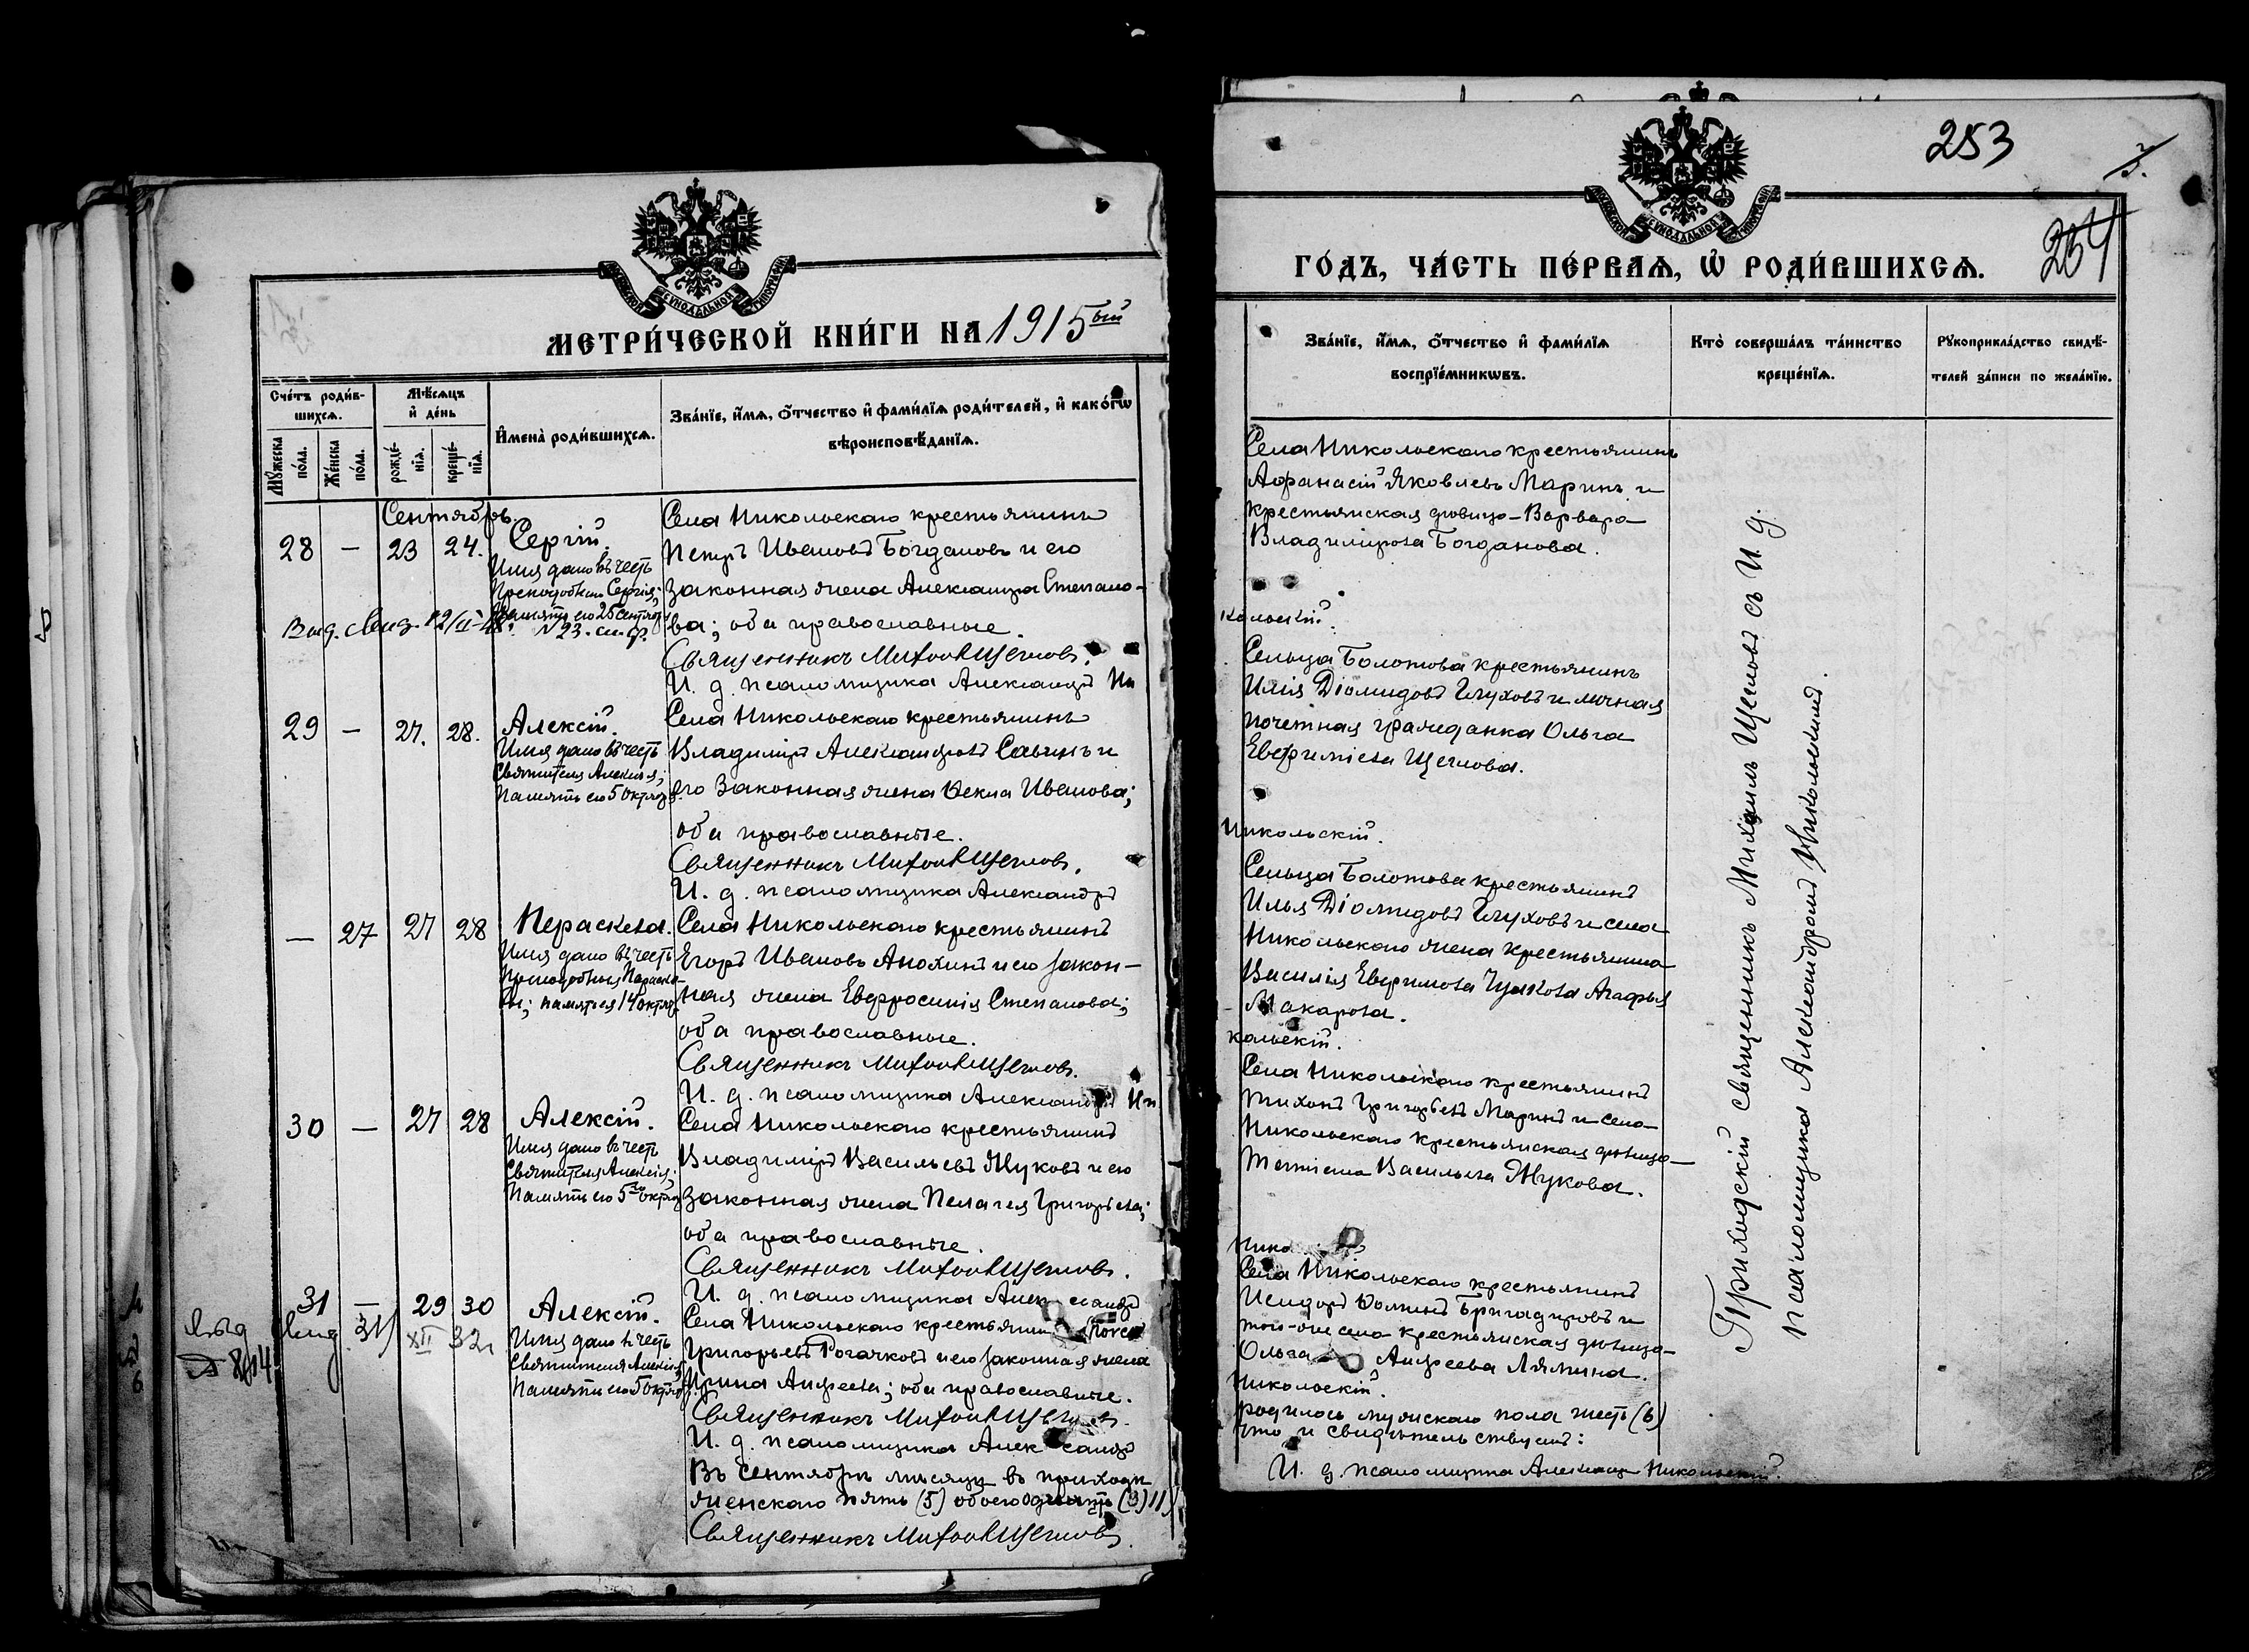 МЕТРИ́ЧЕСКОЙ КНИ́ГИ НА 1915ый
Сче́тъ роди́в-
шихсѧ.
Мѣ́сѧцъ
и҆ де́нь
Мꙋ́жеска
по́ла.
Же́нска
по́ла.
рожде́-
нїѧ.
креще́-
нїѧ.
И҆мена̀ роди́вшихсѧ.
Зва́нїе, и҆́мѧ, ѻ҆́тчество и҆ фами́лїѧ роди́телей, и҆ како́гѡ
вѣроисповѣ́данїѧ.
Сентябрь.
28 — 23 24. Сергій.
Имя дано въ честь
Преподобнаго Сергія;
память его 25 сентяб.
Села Никольскаго крестьянинъ
Петръ Ивановъ Богдановъ и его
законная жена Александра Степано-
ва; оба православные.
Священникъ Михаилъ Щегловъ.
И. д. псаломщика Александръ Ни
29 — 27. 28. Алексій.
Имя дано въ честь
Святителя Алексія;
Память его 5 октяб.
Села Никольскаго крестьянинъ
Владиміръ Александровъ Савинъ и
его законная жена Ѳекла Иванова;
оба православные.
Священникъ Михаилъ Щегловъ.
И. д. псаломщика Александръ
— 27 27 28 Параскева.
Имя дано въ честь
Преподобныя Параске-
вы; память ея 14 октяб.
Села Никольскаго крестьянинъ
Егоръ Ивановъ Анохинъ и его закон-
ная жена Евфросинія Степанова;
оба православные.
Священникъ Михаилъ Щегловъ.
И. д. псаломщика Александръ Ни
30 — 27 28 Алексій.
Имя дано въ честь
Святителя Алексія;
Память его 5го октяб.
Села Никольскаго крестьянинъ
Владиміръ Васильевъ Жуковъ и его
законная жена Пелагея Григорьева;
оба православные.
Священникъ Михаилъ Щегловъ.
И. д. псаломщика Александръ
31 — 29 30 Алексій.
Имя дано въ честь
Святителя Алексія,
Память его 5 октяб.
Села Никольскаго крестьянинъ
Григорьевъ Рогачковъ и его законная жена
Ирина Андреева; оба православные.
Священникъ Михаилъ Щегловъ.
И. д. псаломщика Александръ
Въ сентябрѣ мѣсяцѣ въ приходѣ
женскаго пять (5) обоего
Священникъ Михаилъ Щегловъ.
253
254
ГО́ДЪ, ЧА́СТЬ ПЕ́РВАѦ, Ѡ҆ РОДИ́ВШИХСѦ.
Зва́нїе, и҆́мѧ, ѻ҆́тчество и҆ фами́лїѧ
воспрїе́мникѡвъ.
Кто̀ соверша́лъ та́инство
креще́нїѧ.
Рꙋкоприкла́дство свидѣ́-
телей за́писи по жела́нїю.
Села Никольскаго крестьянинъ
Афанасій Яковлевъ Маринъ и
крестьянская дѣвица — Варвара
Владимірова Богданова.
кольскій.
Сельца Болотова крестьянинъ
Илія Діомидовъ Глуховъ и личная
почетная гражданка Ольга
Евфиміева Щеглова.
Никольскій.
Сельца Болотова крестьянинъ
Илья Діомидовъ Глуховъ и села
Никольскаго жена крестьянина
Василія Евфимова Агафья
Макарова.
кольскій.
Села Никольскаго крестьянинъ
Тихонъ Григорьевъ Маринъ и села
Никольскаго крестьянская дѣвица—
Татіана Васильева Жукова.
Нико
Села Никольскаго крестьянинъ
Исидоръ Ѳоминъ Бригадировъ и
того-же села крестьянская дѣвица—
Ольга Андреева Лямина.
Никольскій.
родилось мужскаго пола шесть (6)
что и свидѣтельствуемъ:
И. д. псаломщика Александръ Никольскій.
Приходскій священникъ Михаилъ Щегловъ съ И. д.
псаломщика Александромъ Никольскимъ.